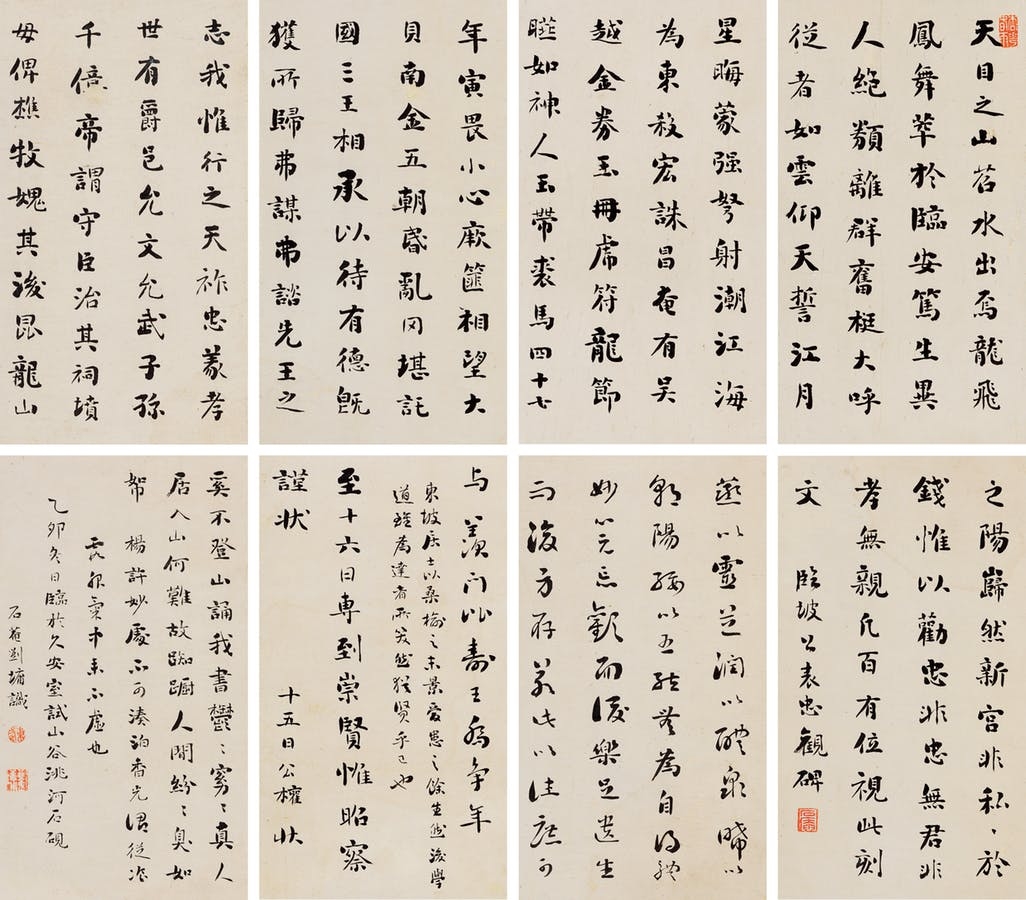 天目之山苕水出焉龍飛
鳳舞萃於臨安篤生異
人絕類離群奮梃大呼
從者如雲仰天誓江月
星晦蒙强弩射潮江海
為東殺宏誅昌奄有吳
越金券玉冊虎符龍節
如神人玉帶裘馬四十七
年寅畏小心厥篚相望大
貝南金五朝昏亂罔堪託
國三王相承以待有德既
獲所歸弗謀弗諮先王之
志我惟行之天祚忠義孝
世有爵邑允文允武子孫
千億帝謂守臣治其祠墳
毋俾樵牧媿其後昆龍山
之陽巋然新宮非私〻於
錢惟以勸忠非忠無君非
孝無親凡百有位視此刻
文 臨坡公表忠觀碑
蒸以靈芝潤以醴泉晞以
朝陽綏以五弦無為自得體
妙心玄忘歡而後樂足遺生
而後身存若此以往庶可
与羨門比壽王喬爭年
東坡居士以桑榆之末景憂患之餘生然後學
道雖為達者所笑然猶賢乎已也
至十六日專到崇賢惟昭察
謹狀 十五日公權狀
奚不登山誦我書鬱〻窈〻真人
居入山何難故踟躕人間紛〻臭如
帤 楊許妙處不可湊泊香光謂從
來不虛也
乙卯冬日臨於久安室試山谷洮河石硯
石菴劉墉識